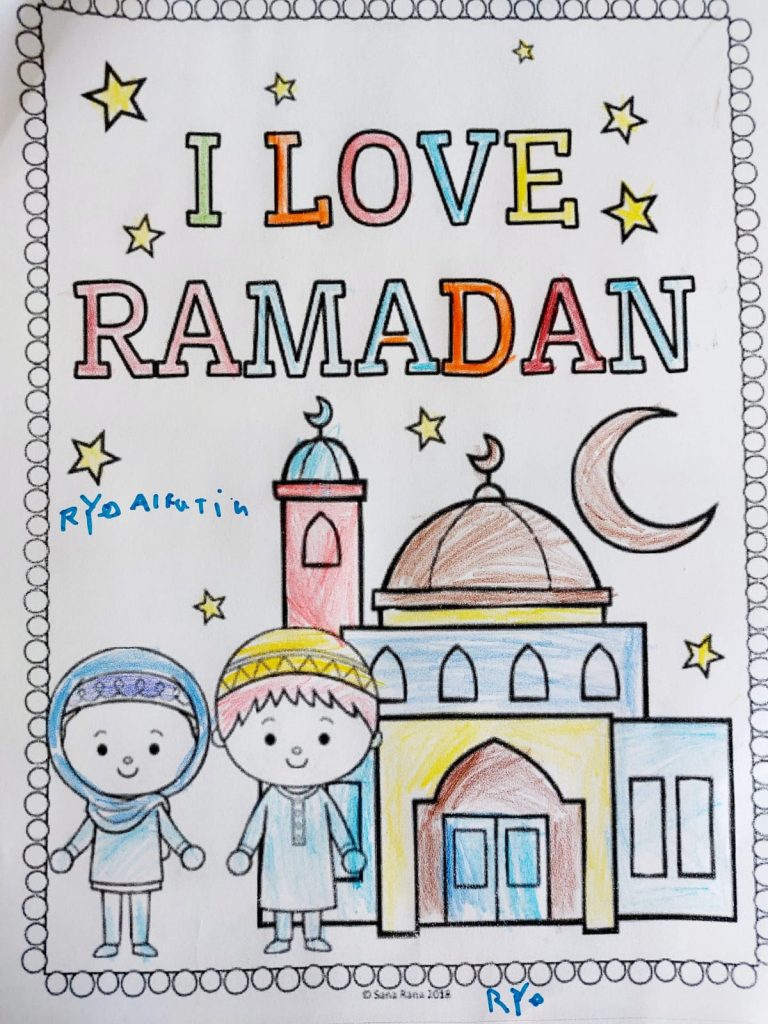 I LOVE
RAMADAN
RYO Alfatih
© Sana Rana 2018
RYO